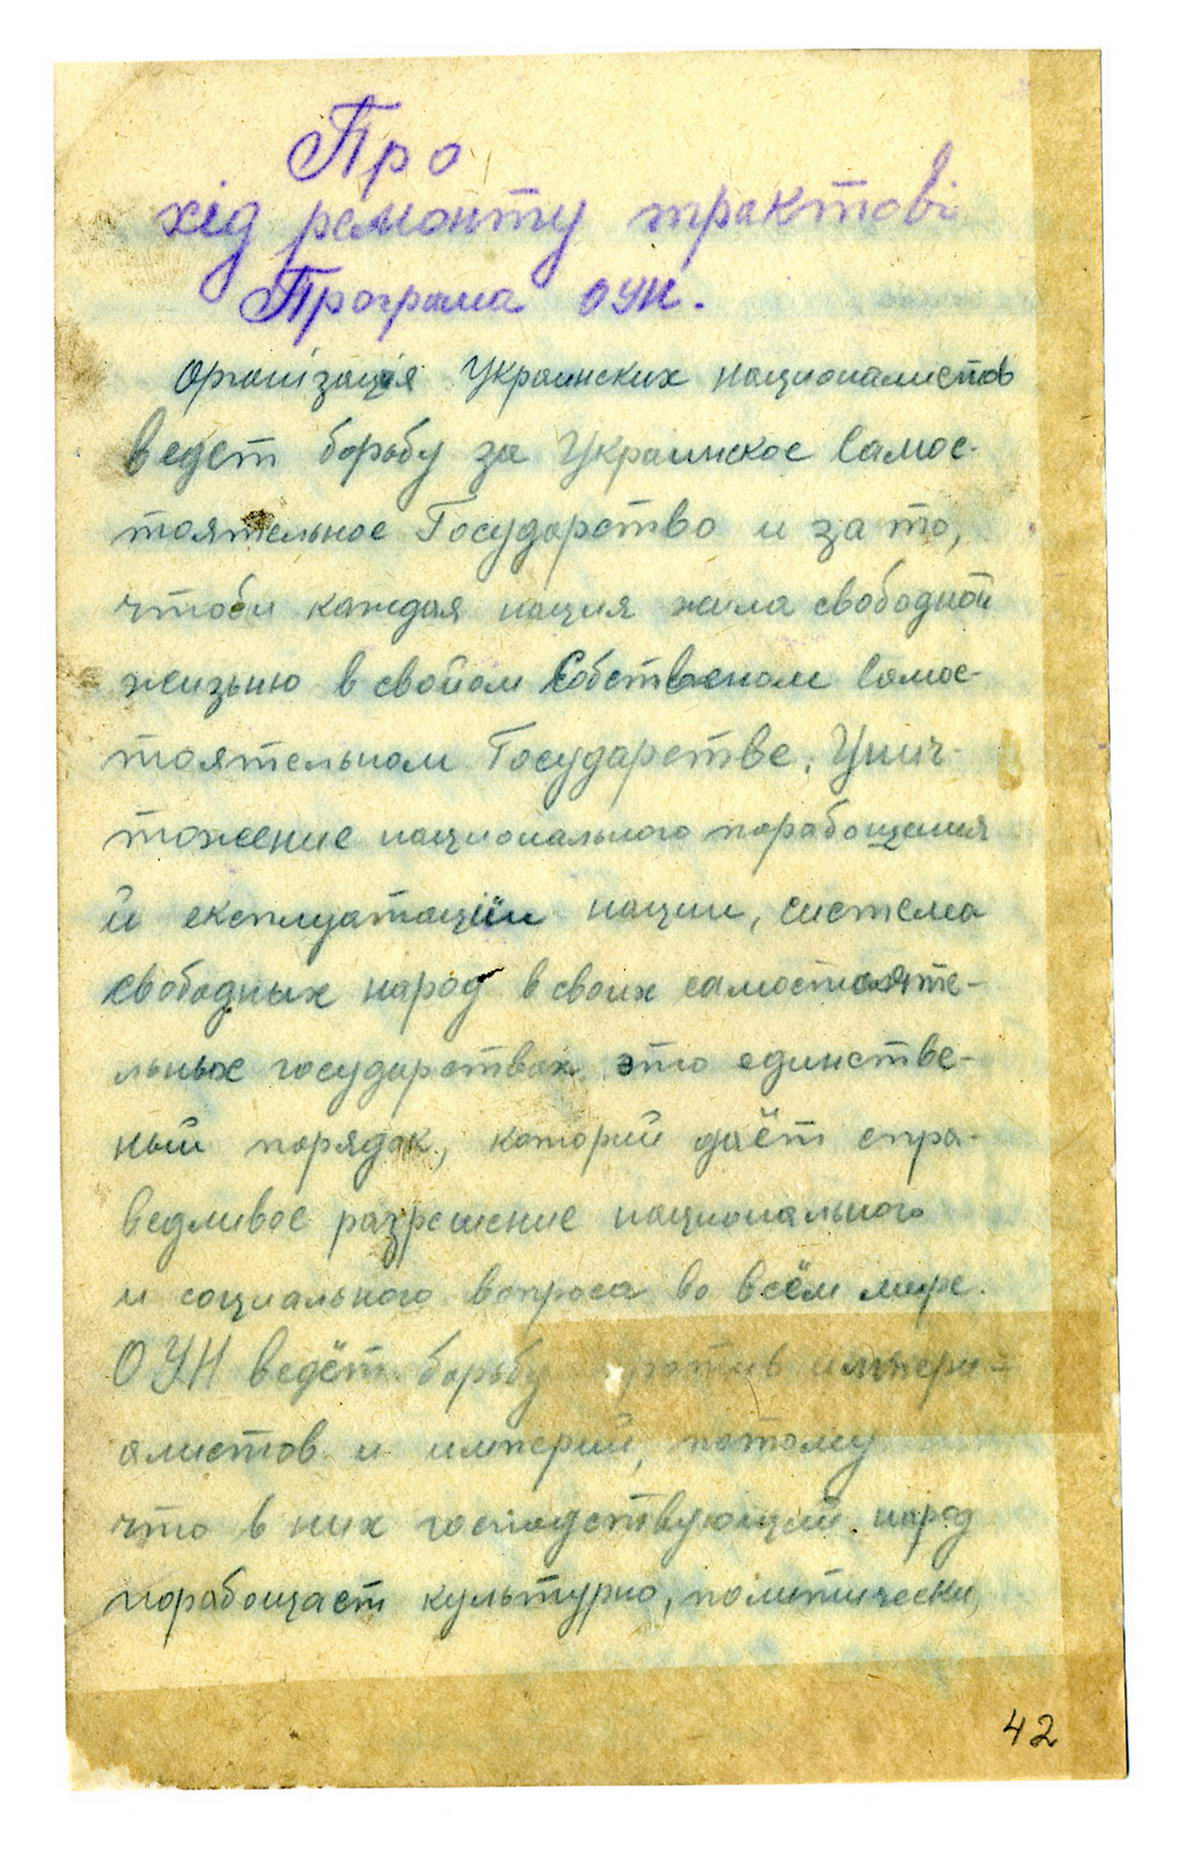 Про
хід ремонту трактові
Програма ОУН.
Організація Украинских националистов
ведет борьбу за Украинское Самос-
тоятельное Государство и за то,
чтоби каждая нация жила свободной
жизьню в свойом Собственом Самос-
тоятельном Государстве. Унич-
тожение национального порабощения
й експлуатаціи нации, система
свободных народ в своих самостояте-
льных государствах это единстве-
ный порядок, который даёт спра-
ведливое разрешение национального
и социального вопроса во всём мире.
ОУН ведёт борьбу против импери-
алистов и империй, потому
что в них господствующий народ
порабощает культурно, политически,
42